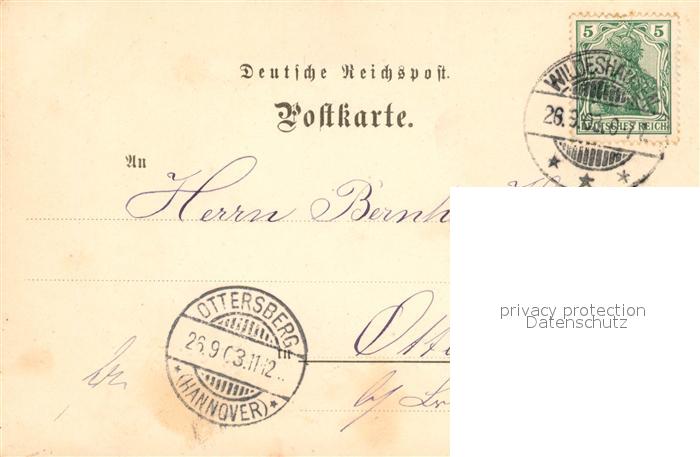 5 5
Deutsche Reichspost.
WILDESHAUSEN
26.9.03.
DEUTSCHES REICH
Postkarte.
An
Herrn Bernh
privacy protection
Datenschutz
OTTERSBERG
26.9 03.11-12
*(HANNOVER)*
in Otte
b/